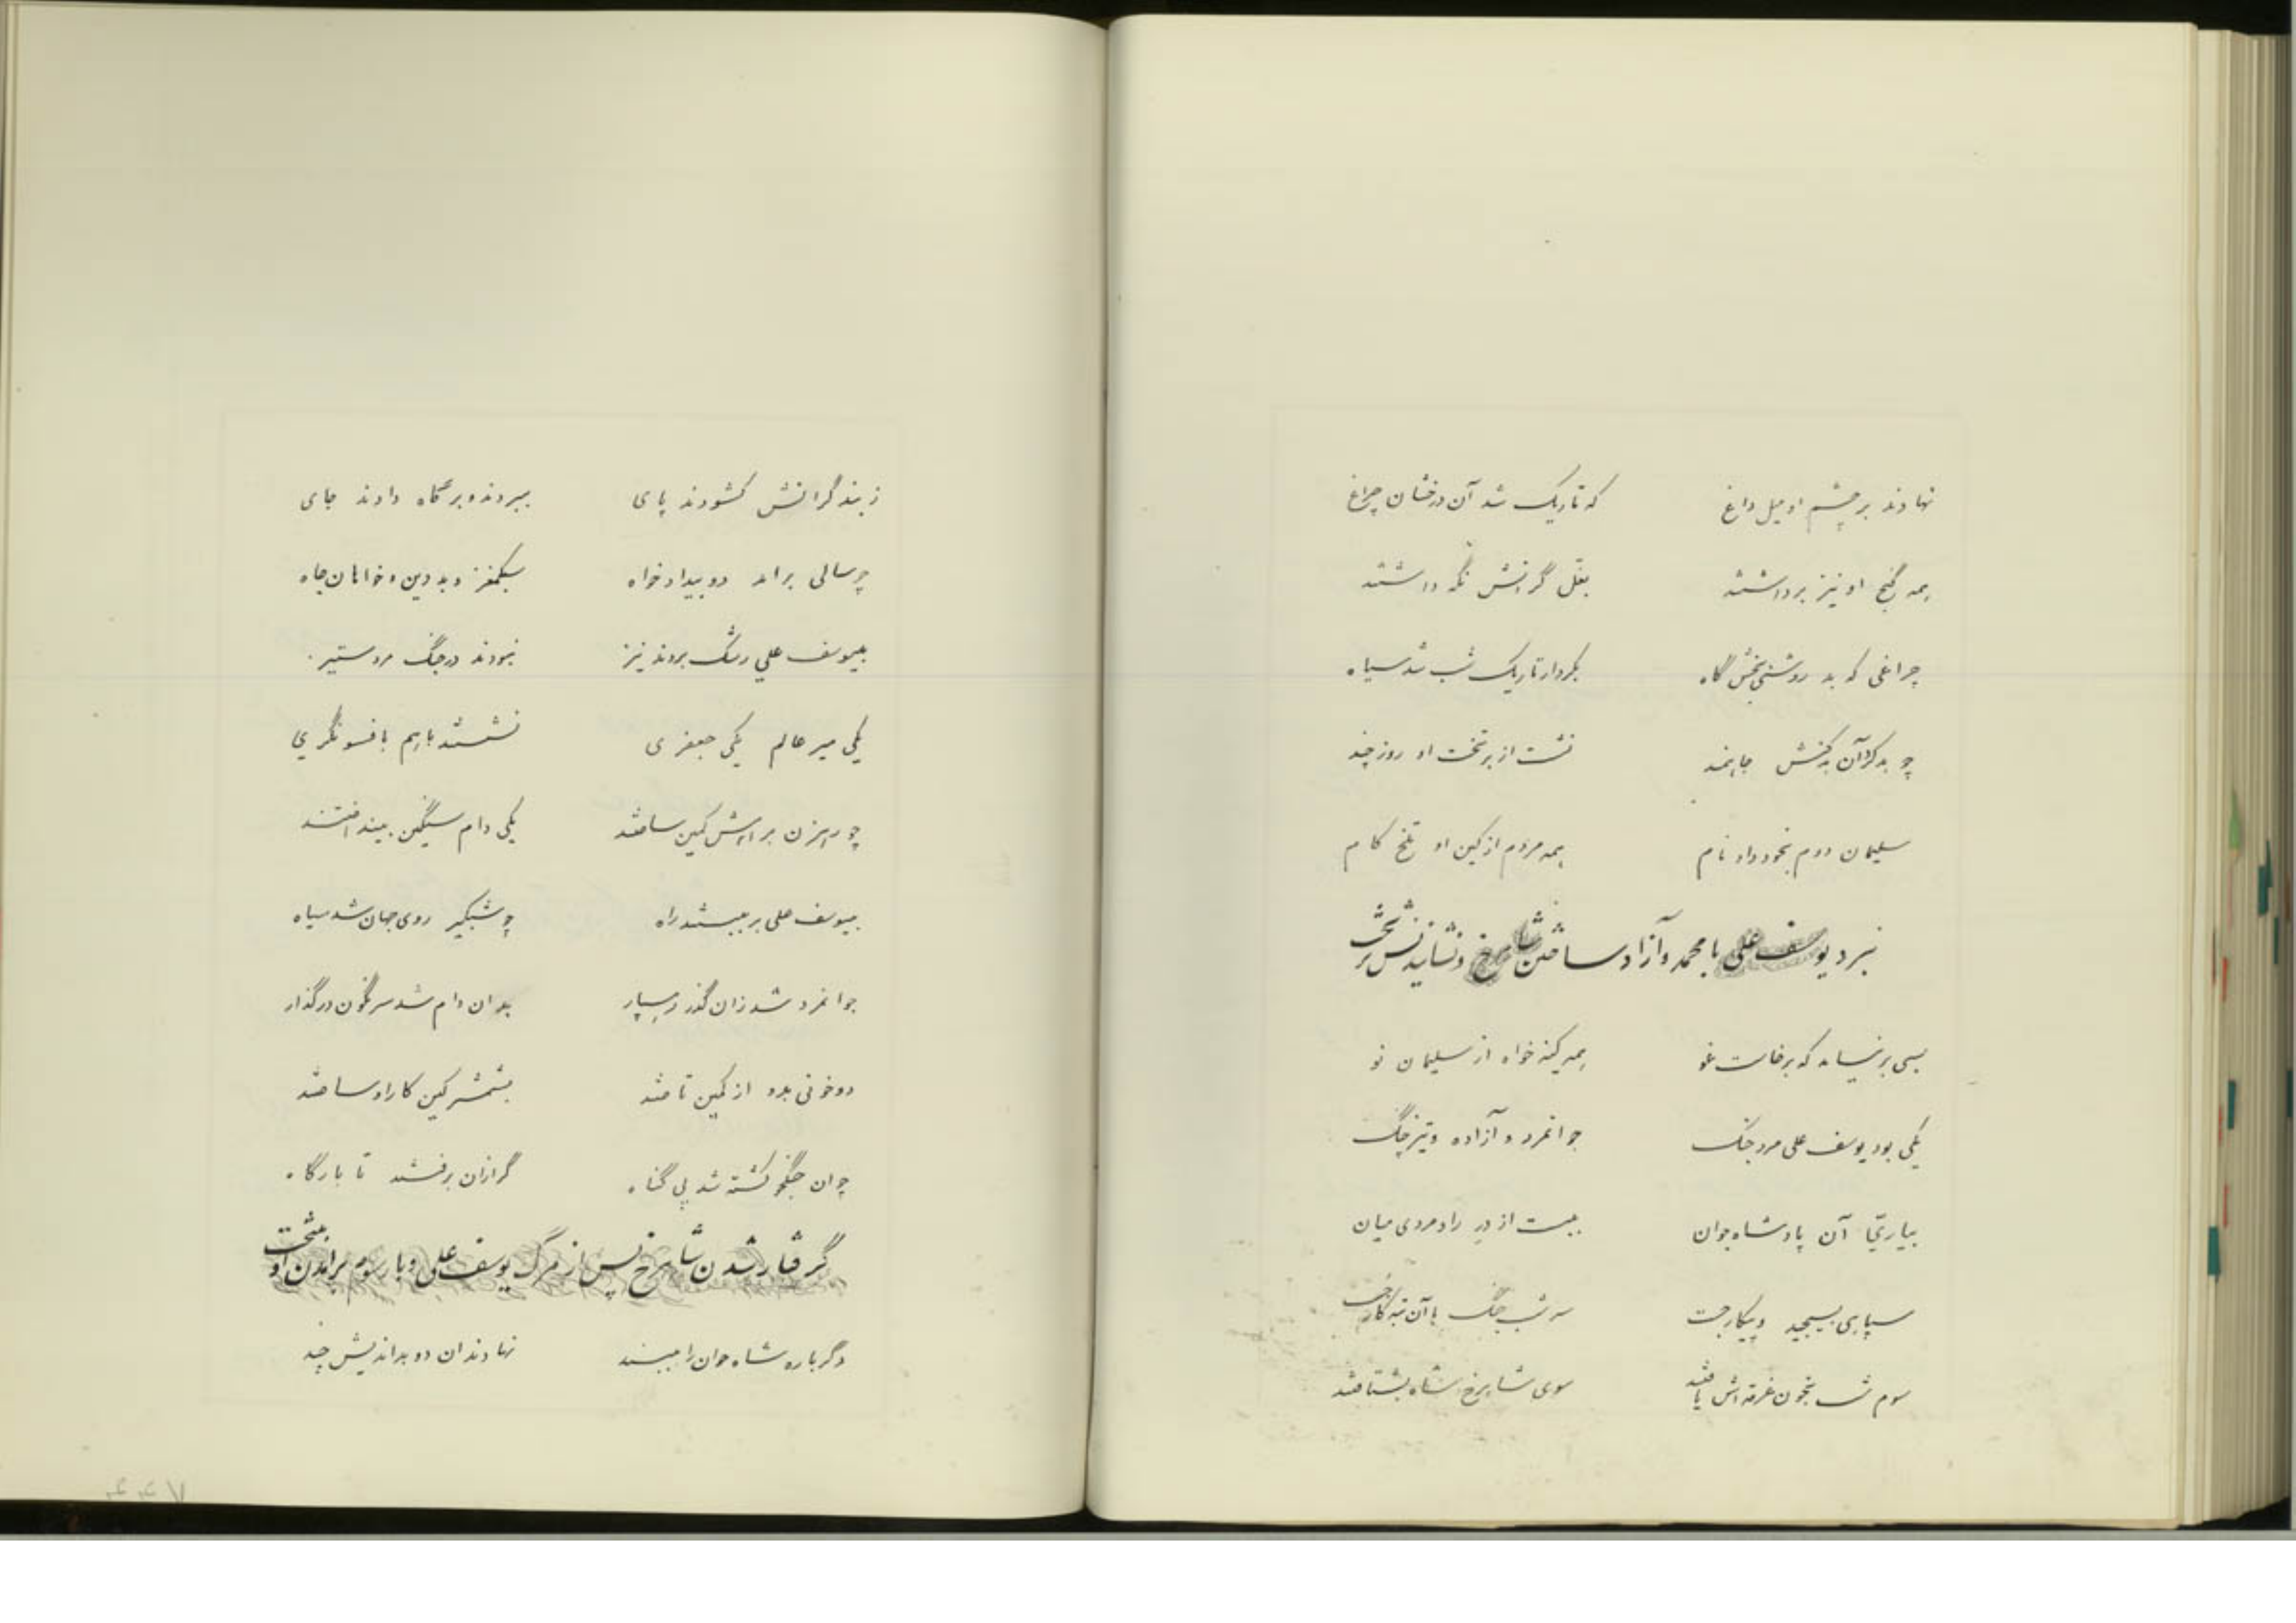 نهادند بر چشم او میل داغ که تاریک شد آن درخشان چراغ
همه گنج او نیز برداشتند بغل گرانش نگه داشتند
چراغی که بد روشنی بخش گاه بکردار تاریک شب شد سیاه
چو بد کرد آن بدکنش جایمند نشست از بر تخت او روز چند
سلیمان دوم بخود داد نام همه مردم از کین او تلخ کام
نبرد یوسف علی با محمد و آزاد ساختن شاهرخ و نشاندنش بر تخت
بسی بر نیامد که برخاست غو همه کینه خواه از سلیمان نو
یکی بود یوسف علی مرد جنگ جوانمرد و آزاده و تیزچنگ
بیاری آن پادشاه جوان ببست از در رادمردی میان
سپاهی بسیجید و پیکار جست سه شب جنگ با آن تبه کار جست
سوم شب بخون غرقه اش یافتند سوی شاهرخ شاه بشتافتند
ز بند گرانش گشودند پای ببردند و بر گاه دادند جای
چو سالی بر آمد دو بیدادخواه سبکمغز و بد دین و خواهان جاه
بیوسف علی رشک بردند نیز نبودند در جنگ مرد ستیز
یکی میر عالم یکی جعفری نشستند باهم بافسونگری
چو رهزن براهش کمین ساختند یکی دام سنگین بینداختند
بیوسف علی بر ببستند راه چو شبگیر روی جهان شد سیاه
جوانمرد شد زان گذر رهسپار بدان دام شد سرنگون در گذار
دو خونی بدو از کمین تاختند بشمشیر کین کار او ساختند
چو آن جنگجو کشته شد بی گناه گرازان برفتند تا بارگاه
گرفتار شدن شاهرخ پس از مرگ یوسف علی و بار سوم برآمدن او بتخت
دگر باره شاه جوان را ببند نهادند آن دو بداندیش چند